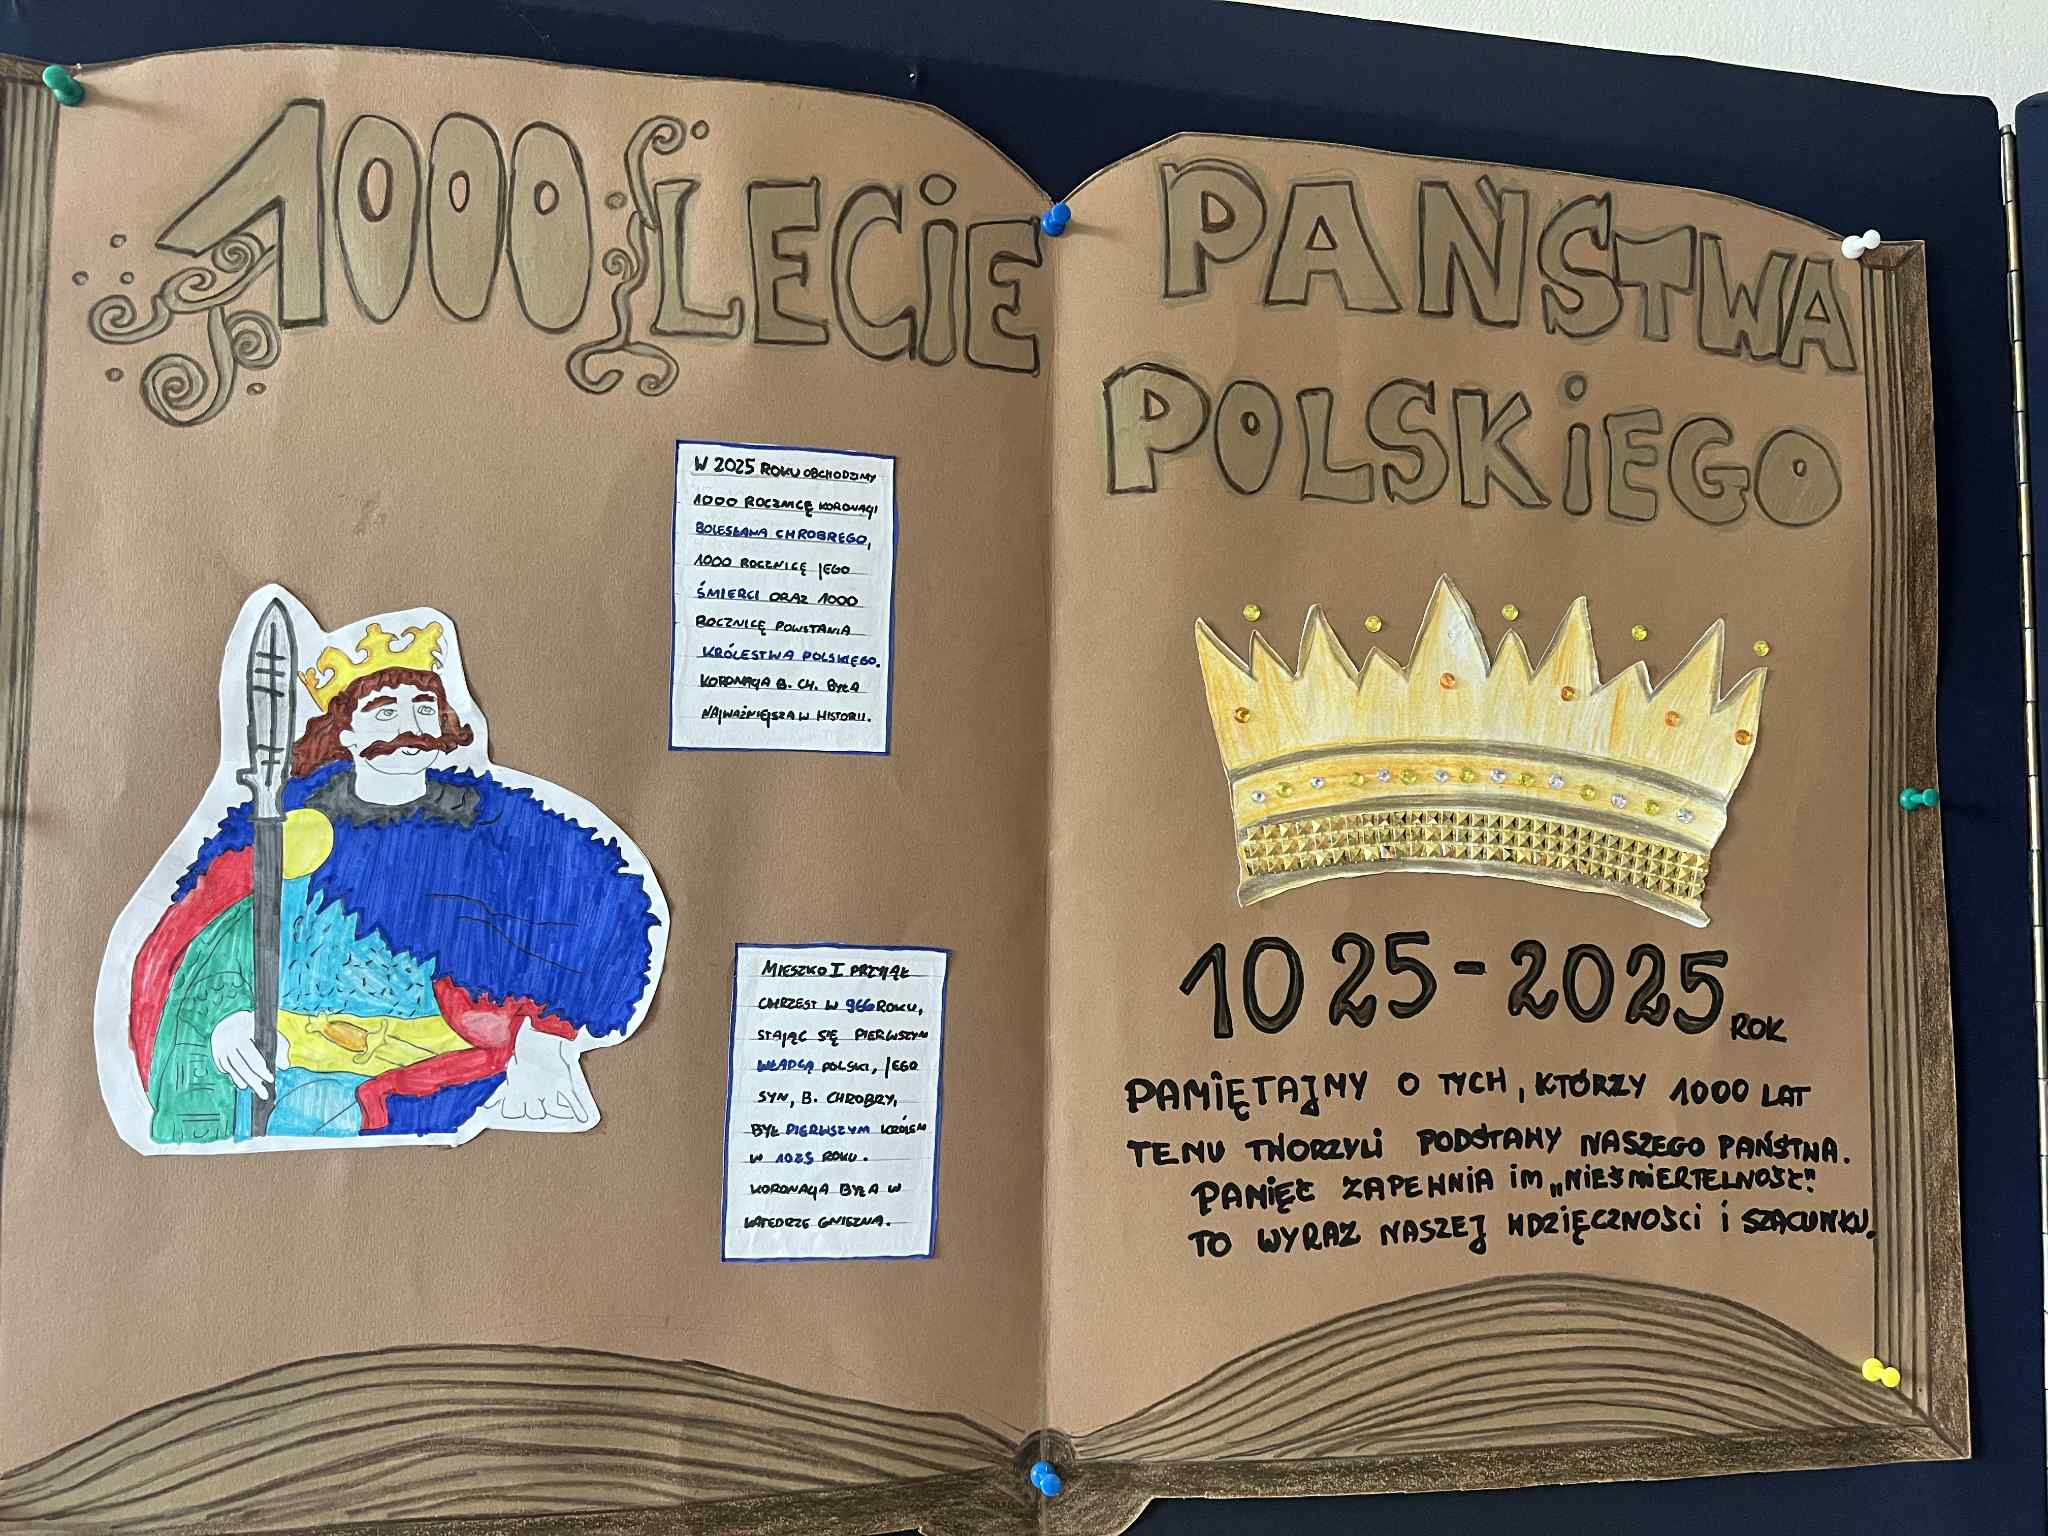 1000 LECIE
PAŃSTWA
POLSKIEGO
W 2025 ROKU OBCHODZIMY
1000 ROCZNICĘ KORONACJI
BOLESŁAWA CHROBREGO,
1000 ROCZNICĘ JEGO
ŚMIERCI ORAZ 1000
ROCZNICĘ POWSTANIA
KRÓLESTWA POLSKIEGO.
KORONACJA B. CH. BYŁA
NAJWAŻNIEJSZA W HISTORII.
MIESZKO I PRZYJĄŁ
CHRZEST W 966 ROKU,
STAJĄC SIĘ PIERWSZYM
WŁADCĄ POLSKI, JEGO
SYN, B. CHROBRY,
BYŁ PIERWSZYM KRÓLEM
W 1025 ROKU.
KORONACJA BYŁA W
KATEDRZE GNIEZNA.
1025-2025 ROK
PAMIĘTAJMY O TYCH, KTÓRZY 1000 LAT
TEMU TWORZYLI PODSTAWY NASZEGO PAŃSTWA.
PAMIĘĆ ZAPEWNIA IM „NIEŚMIERTELNOŚĆ".
TO WYRAZ NASZEJ WDZIĘCZNOŚCI I SZACUNKU.